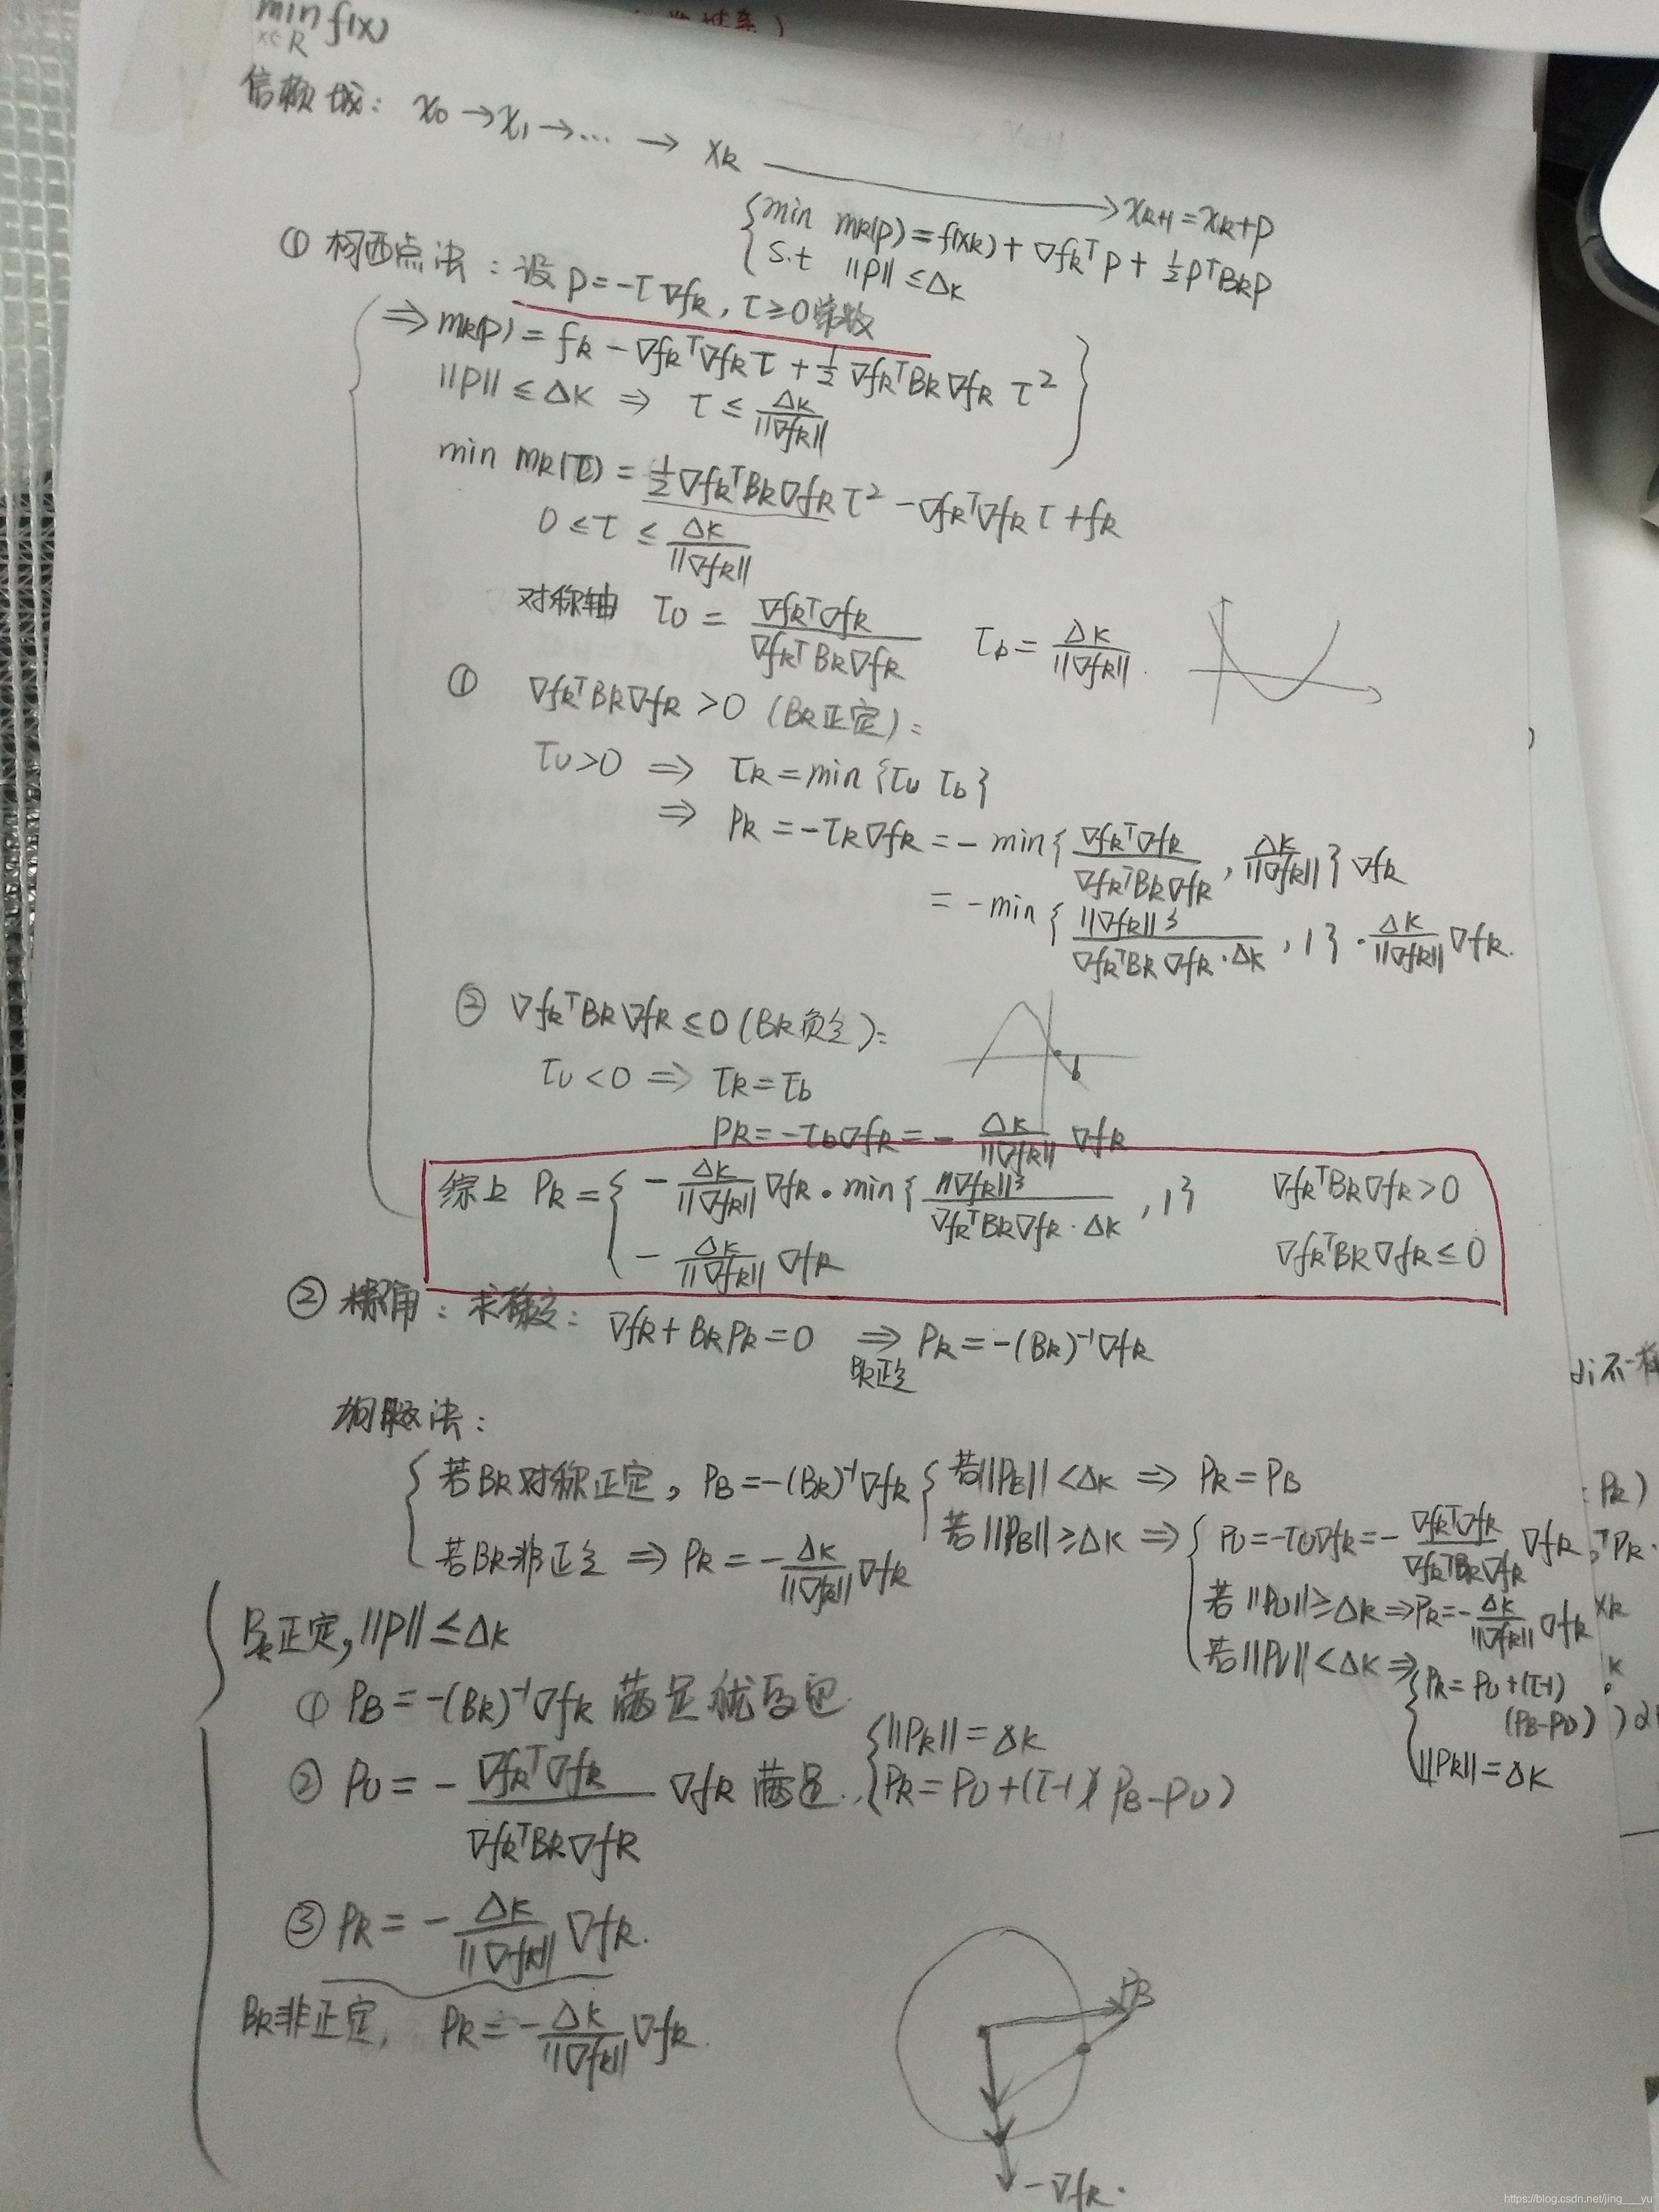 min f(x)
x∈R
信赖域: x₀ → x₁ → … → xₖ → xₖ₊₁ = xₖ+p
{ min mₖ(p) = f(xₖ) + ∇fₖᵀp + ½pᵀBₖp
s.t ‖p‖ ≤ Δₖ
① 柯西点法: 设 p = -τ∇fₖ, τ≥0常数
⇒ mₖ(p) = fₖ - ∇fₖᵀ∇fₖ τ + ½ ∇fₖᵀBₖ∇fₖ τ²
‖p‖ ≤ Δₖ ⇒ τ ≤ Δₖ/‖∇fₖ‖
min mₖ(τ) = ½∇fₖᵀBₖ∇fₖ τ² - ∇fₖᵀ∇fₖ τ + fₖ
0 ≤ τ ≤ Δₖ/‖∇fₖ‖
对称轴 τᵤ = ∇fₖᵀ∇fₖ/∇fₖᵀBₖ∇fₖ τb = Δₖ/‖∇fₖ‖.
① ∇fₖᵀBₖ∇fₖ > 0 (Bₖ正定):
τᵤ>0 ⇒ τₖ = min{τᵤ τb}
⇒ pₖ = -τₖ∇fₖ = - min{∇fₖᵀ∇fₖ/∇fₖᵀBₖ∇fₖ, Δₖ/‖∇fₖ‖} ∇fₖ
= - min{‖∇fₖ‖³/∇fₖᵀBₖ∇fₖ·Δₖ, 1} · Δₖ/‖∇fₖ‖ ∇fₖ.
② ∇fₖᵀBₖ∇fₖ ≤ 0 (Bₖ负定):
b
τᵤ < 0 ⇒ τₖ = τb
pₖ = -τb∇fₖ = - Δₖ/‖∇fₖ‖ ∇fₖ
综上 pₖ = { - Δₖ/‖∇fₖ‖ ∇fₖ · min{‖∇fₖ‖³/∇fₖᵀBₖ∇fₖ·Δₖ, 1} ∇fₖᵀBₖ∇fₖ > 0
- Δₖ/‖∇fₖ‖ ∇fₖ ∇fₖᵀBₖ∇fₖ ≤ 0
② : ∇fₖ + Bₖpₖ = 0 ⇒ pₖ = -(Bₖ)⁻¹∇fₖ
Bₖ正定
di不一样
狗腿法:
{ 若Bₖ对称正定, p_B = -(Bₖ)⁻¹∇fₖ { 若‖p_B‖ < Δₖ ⇒ pₖ = p_B
若‖p_B‖ ≥ Δₖ ⇒ { pᵤ = -τᵤ∇fₖ = - ∇fₖᵀ∇fₖ/∇fₖᵀBₖ∇fₖ ∇fₖ
若Bₖ非正定 ⇒ pₖ = - Δₖ/‖∇fₖ‖ ∇fₖ
若‖pᵤ‖ ≥ Δₖ ⇒ pₖ = - Δₖ/‖∇fₖ‖ ∇fₖ
若‖pᵤ‖ < Δₖ ⇒ { pₖ = pᵤ + (τ-1)
(p_B-pᵤ)
‖pₖ‖ = Δₖ
Bₖ正定, ‖p‖ ≤ Δₖ
① p_B = -(Bₖ)⁻¹∇fₖ 满足
② pᵤ = - ∇fₖᵀ∇fₖ/∇fₖᵀBₖ∇fₖ ∇fₖ 满足. { ‖pₖ‖ = Δₖ
pₖ = pᵤ + (τ-1)(p_B-pᵤ)
③ pₖ = - Δₖ/‖∇fₖ‖ ∇fₖ.
Bₖ非正定, pₖ = - Δₖ/‖∇fₖ‖ ∇fₖ.
p_B
-∇fₖ.
https://blog.csdn.net/jing___yu